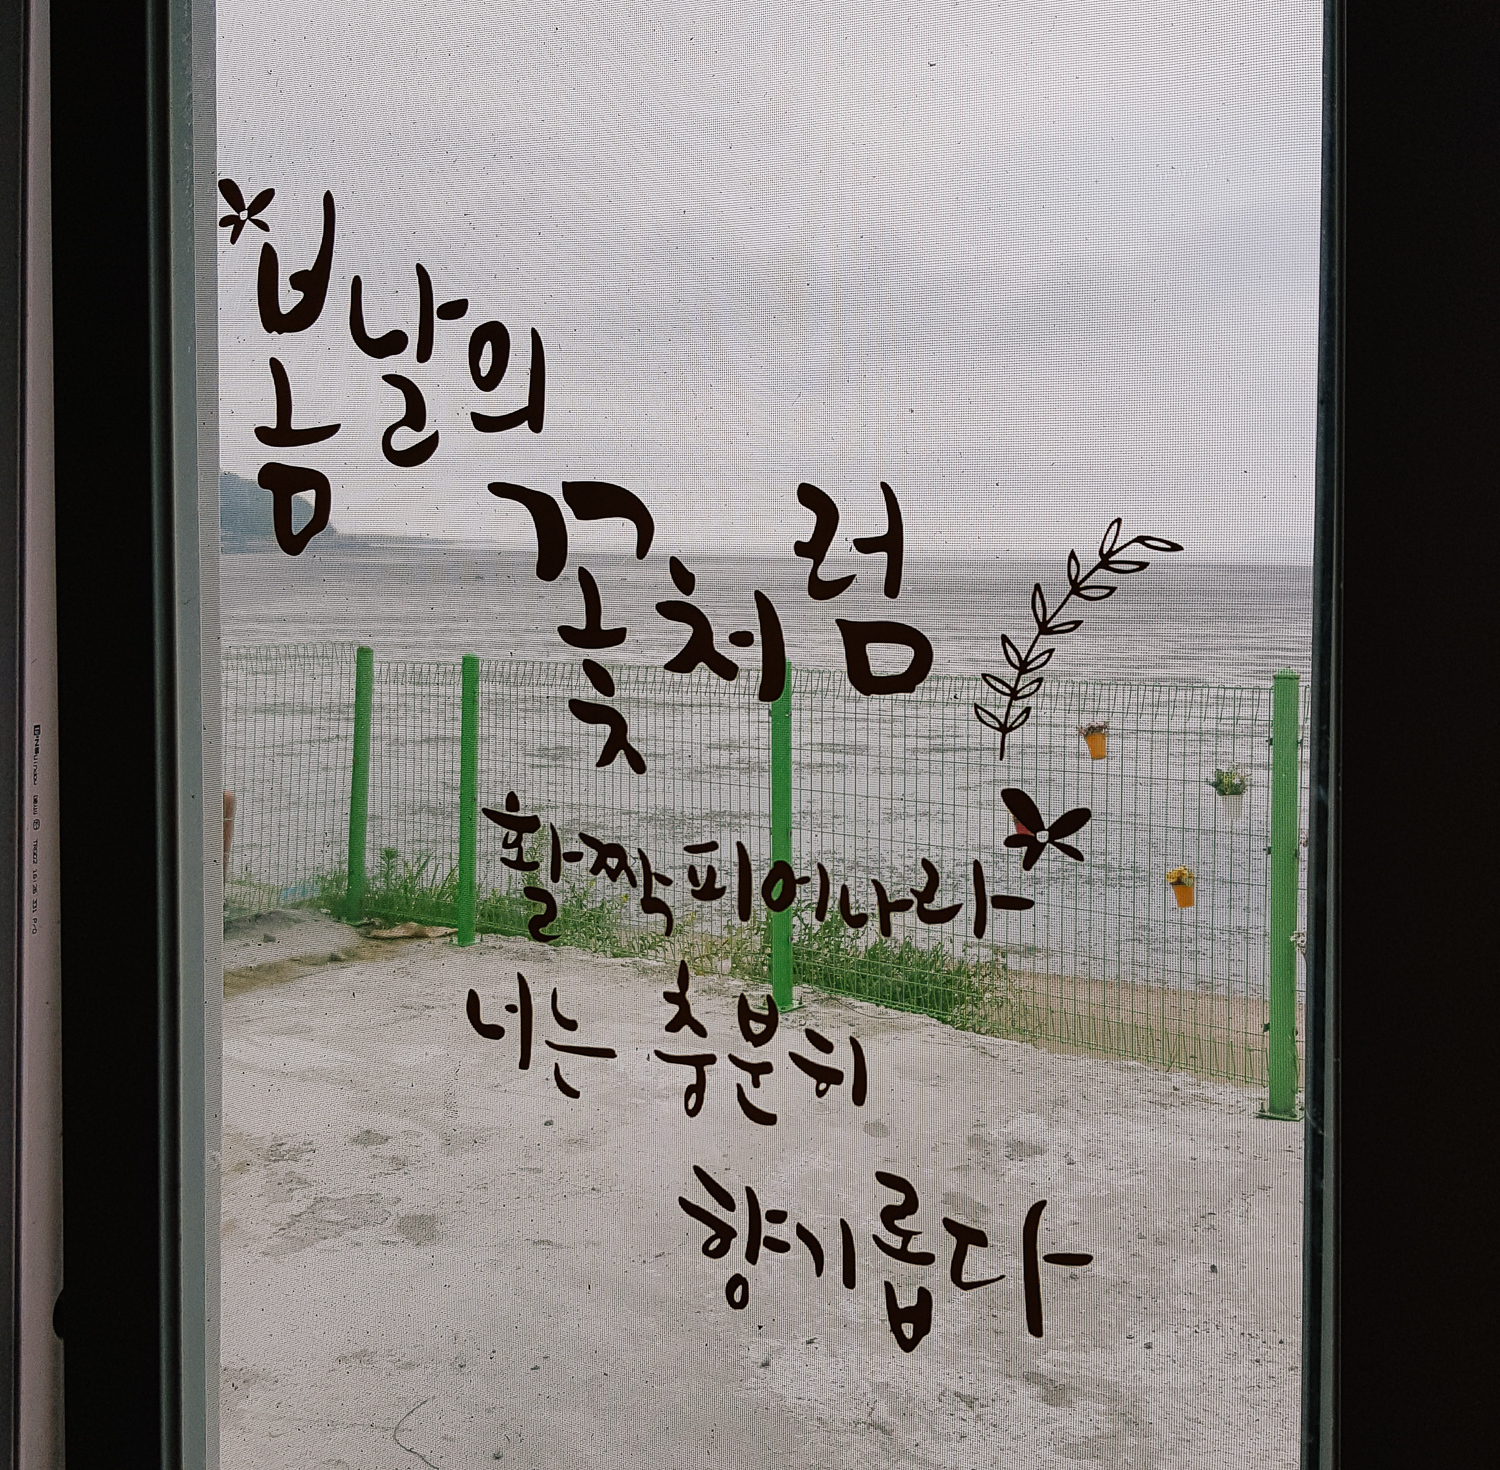 봄날의
꽃처럼
활짝피어나라
너는 충분히
향기롭다